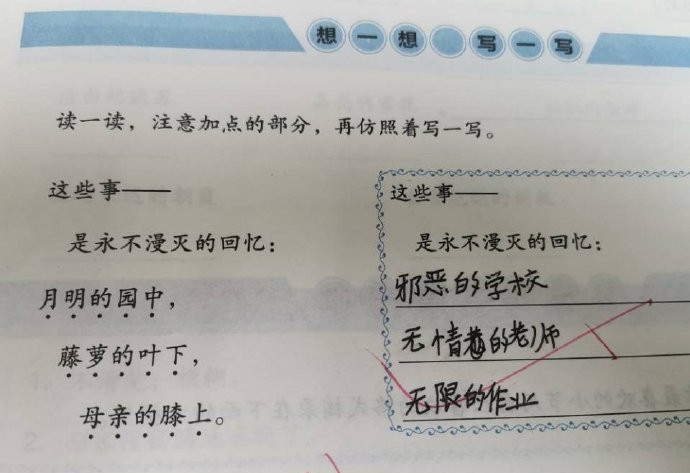 想一想 写一写
读一读，注意加点的部分，再仿照着写一写。
这些事——
是永不漫灭的回忆：
月明的园中，
藤萝的叶下，
母亲的膝上。
这些事——
是永不漫灭的回忆：
邪恶的学校
无情的老师
无限的作业